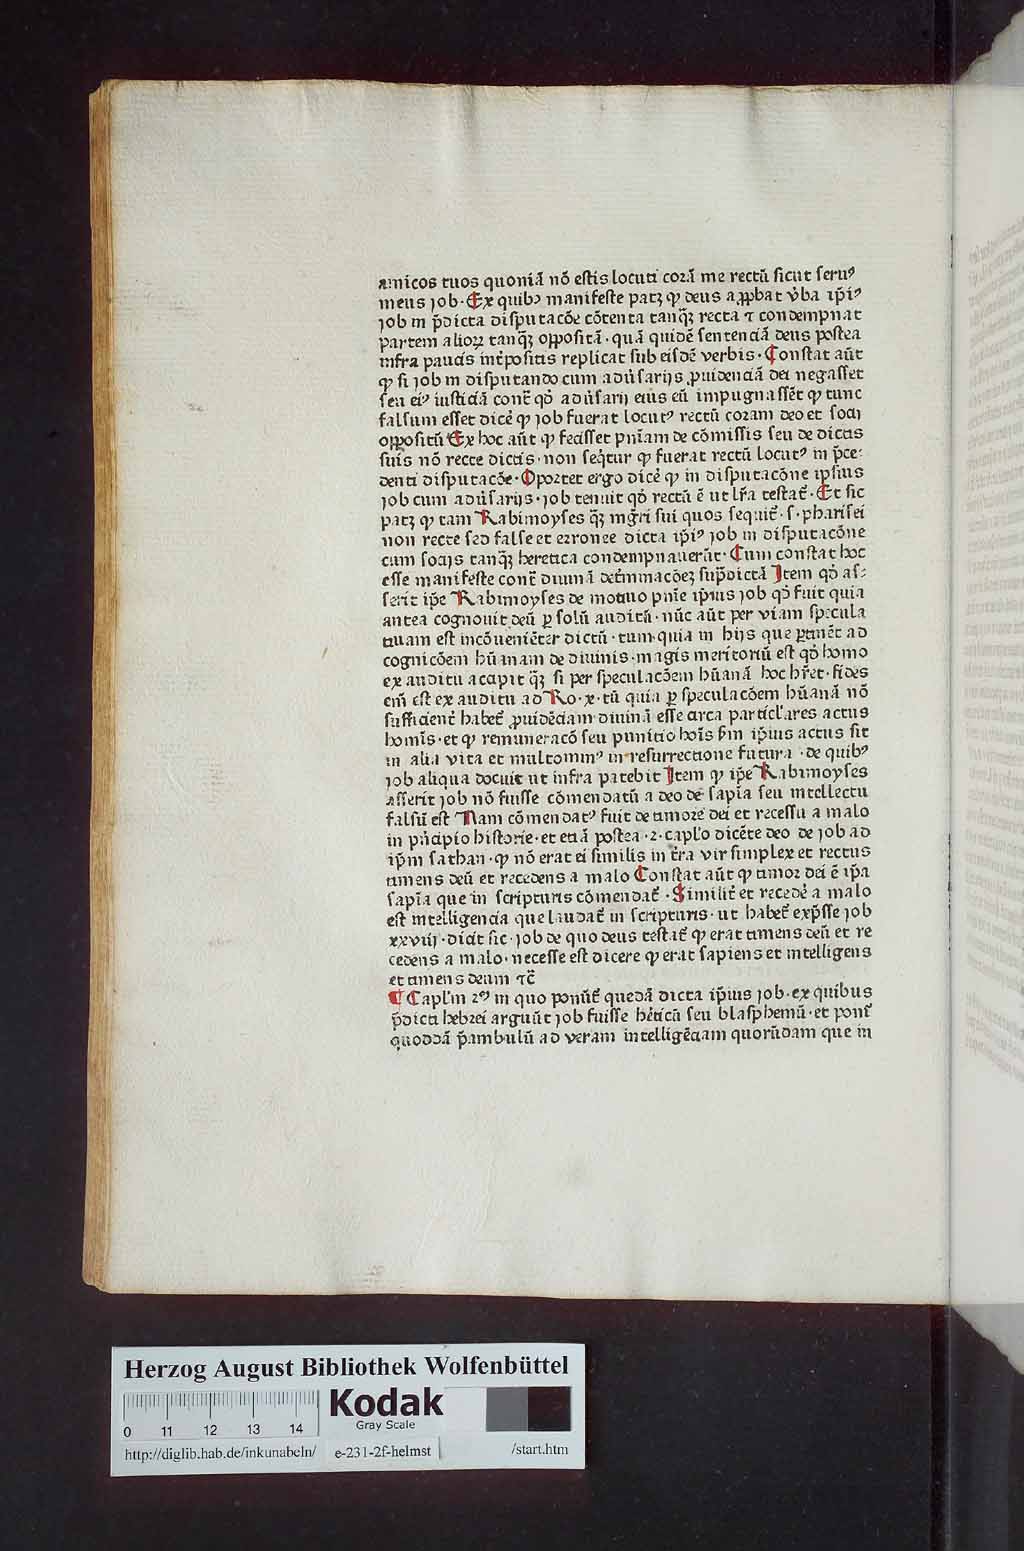 amicos tuos quoniā nō estis locuti corā me rectū sicut seruꝰ
meus job · Ex quibꝰ manifeste patꝫ ꝙ deus aꝓpbat v̄ba ip̄iꝰ
job in p̄dicta disputacōe cōtenta tanq̄ꝫ recta ⁊ condempnat
partem alioꝝ tanq̄ꝫ oppositā · quā quidē sentenciā deus postea
infra paucis int̄positis replicat sub eisdē verbis · Constat aūt
ꝙ si job in disputando cum adūsarijs ꝓuidenciā dei negasset
seu eiꝰ iusticiā cont̄ qd̄ adūsarij eius eū impugnassēt ꝙ tunc
falsum esset dicē ꝙ job fuerat locutꝰ rectū coram deo et socij
oppositū Ex hoc aūt ꝙ fecisset pn̄iam de cōmissis seu de dictis
suis nō recte dictis · non seq̄tur ꝙ fuerat rectū locutꝰ in p̄ce-
denti disputacōe · Oportet ergo dicē ꝙ in disputacōne ipsius
job cum adūsarijs · job tenuit qd̄ rectū ē ut lr̄a testat̄ · Et sic
patꝫ ꝙ tam Rabimoyses q̄ꝫ mḡri sui quos sequit̄ · s · pharisei
non recte sed false et erronee dicta ip̄iꝰ job in disputacōne
cum socijs tanq̄ꝫ heretica condempnauerūt · Cum constat hoc
esse manifeste cont̄ diuinā det̄minacōeꝫ sup̄dictā Item qd̄ as-
serit ip̄e Rabimoyses de motiuo pn̄ie ip̄ius job qd̄ fuit quia
antea cognouit deū ꝑ solū auditū · nūc aūt per viam specula
tiuam est incōueniēter dictū · tum · quia in hijs que ꝑtinēt ad
cognicōem hūmam de diuinis · magis meritoriū est qd̄ homo
ex auditu accipit q̄ꝫ si per speculacōem hūanā hoc hr̄et · fides
em̄ est ex auditu ad Ro · x · tū quia ꝑ speculacōem hūanā nō
sufficient̄ habet̄ ꝓuidēciam diuinā esse circa particl̄ares actus
homīs · et ꝙ remuneracō seu punitio hoīs scd̄m ip̄ius actus sit
in alia vita et multominꝰ in resurrectione futura · de quibꝰ
job aliqua docuit ut infra patebit Item ꝙ ip̄e Rabimoyses
asserit job nō fuisse cōmendatū a deo de sapīa seu intellectu
falsū est Nam cōmendatꝰ fuit de timore dei et recessu a malo
in pn̄cipio historie · et etiā postea · 2 · capl̄o dicēte deo de job ad
ip̄m sathan · ꝙ nō erat ei similis in t̄ra vir simplex et rectus
timens deū et recedens a malo Constat aūt ꝙ timor dei ē ip̄a
sapīa que in scripturis cōmendat̄ · Similit̄ et recedē a malo
est intelligencia que laudat̄ in scripturis · ut habet̄ exp̄sse job
xxviij · dicit sic · job de quo deus testat̄ ꝙ erat timens deū et re
cedens a malo · necesse est dicere ꝙ erat sapiens et intelligens
et timens deum ⁊c̄
¶ Capl̄m 2ᵐ in quo ponūt̄ quedā dicta ip̄ius job · ex quibus
p̄dicti hebrei arguūt job fuisse hēticū seu blasphemū · et ponit̄
quoddā p̄ambulū ad veram intelligēciam quorūdam que in
Herzog August Bibliothek Wolfenbüttel
Kodak
Gray Scale
0 11 12 13 14
http://diglib.hab.de/inkunabeln/ e-231-2f-helmst /start.htm